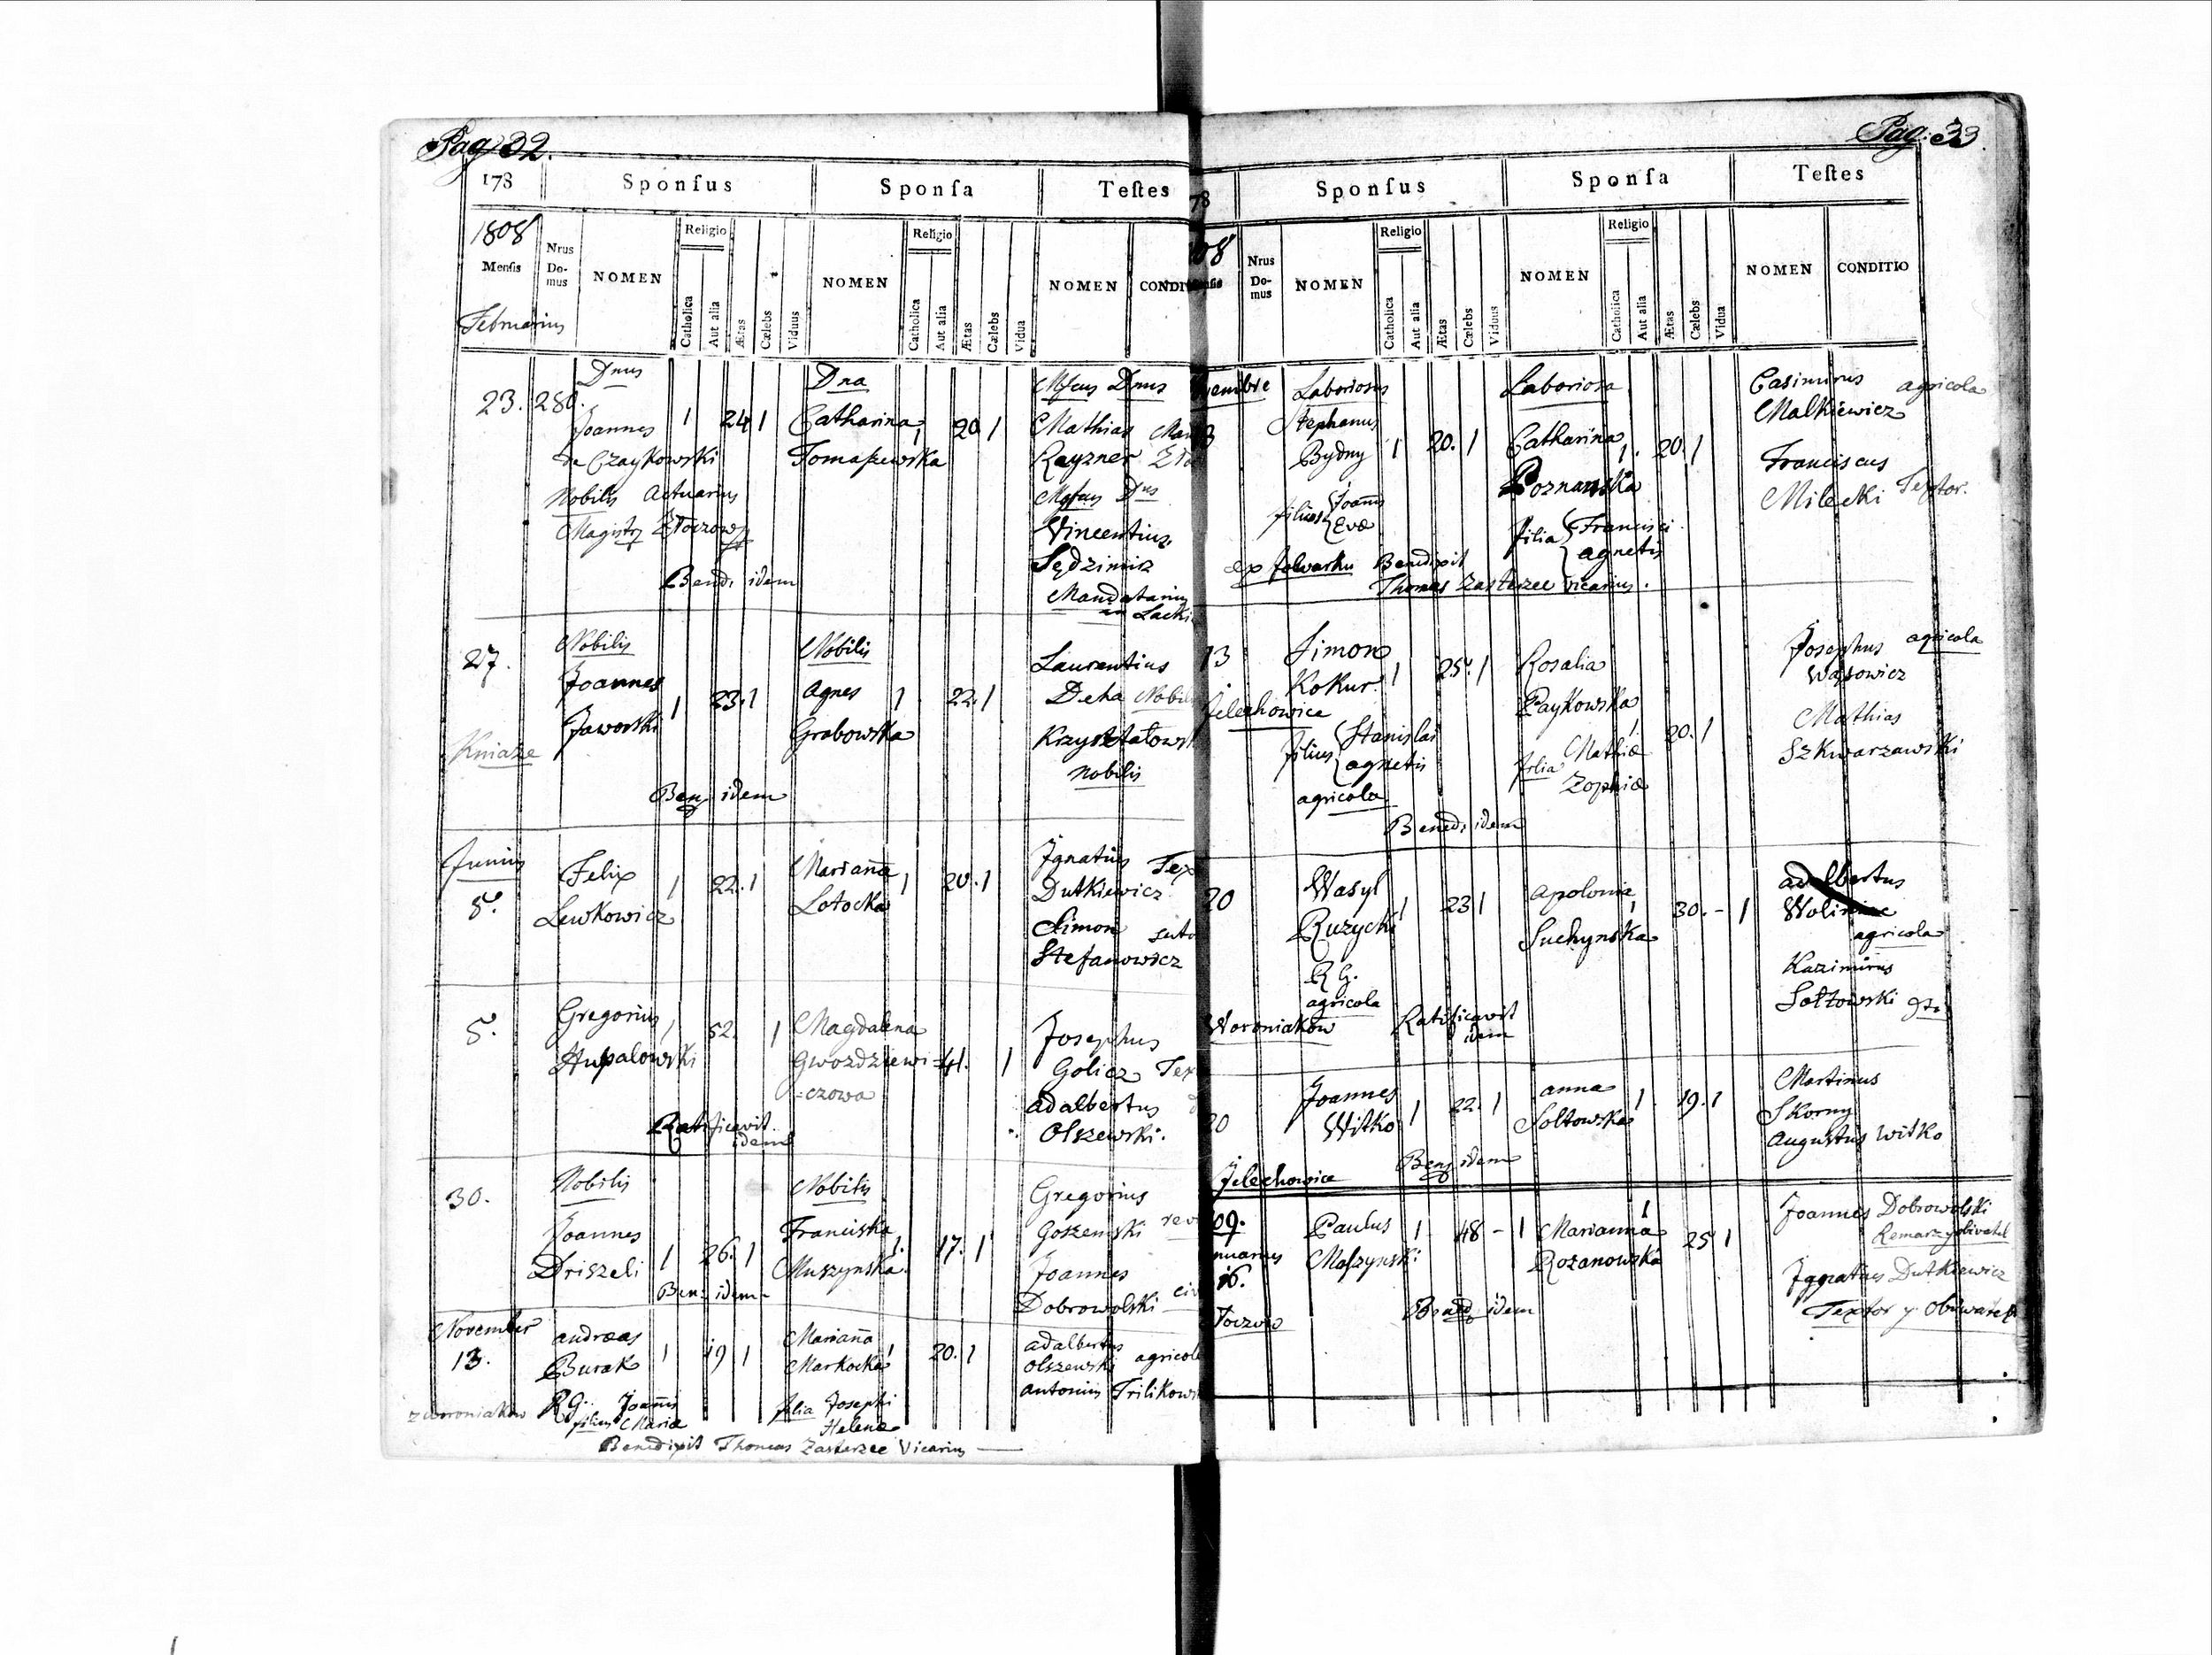 Pag 32.
178 Sponſus Sponſa Teſtes
1808 Menſis Nrus Do- mus NOMEN Religio Catholica Aut alia Ætas Cælebs Viduus NOMEN Religio Catholica Aut alia Ætas Cælebs Vidua NOMEN CONDI
Februarius
Dnus Dna Mfcus Dnus
23. 280. Joannes 1 24 1 Catharina 1 20 1 Mathias
de Czaykowski Tomaszewska Rayzner
Nobilis Actuarius
Vincentius
Sędzimir
Bend. idem
Mandatarius
Lacki
Nobilis Nobilis Laurentius
27. Joannes 1 23. 1 Agnes 1 22. 1 Deha Nobil
Jaworski Grabowska Krzyształows
Kniaże nobilis
Ben idem
Junius
Felix 1 22. 1 Marianna 1 20. 1 Ignatius Tex
5. Lewkowicz Lotocka Dutkiewicz
Simon suto
Stefanowicz
5. Gregorius 1 52. 1 Magdalena 41. 1 Josephus
Hupalowski Gwozdziewi= Golicz Tex
=czowa adalbertus
Ratificavit idem Olszewski.
30. Nobilis Nobilis Gregorius
Joannes 1 26. 1 Franciska 1. 17. 1 Goszenski
Driszeli Muszynska Joannes
Ben. idem Dobrowolski civ
November
13. andreas 1 19 1 Marianna 1 20. 1 adalbertus
Burak Markocka Olszewski agricol
z woroniakow R G. filius Joannis Mariæ filia Josephi Helenæ antonius Trilikows
Benedixit Thomas Zasterzec Vicarius
Pag: 33.
78 Sponſus Sponſa Teſtes
08 Nrus Do- mus NOMEN Religio Catholica Aut alia Ætas Cælebs Viduus NOMEN Religio Catholica Aut alia Ætas Cælebs Vidua NOMEN CONDITIO
embre Laboriosus Laboriosa Casimirus agricola
Stephanus Malkiewicz
Bydny 1 20. 1 Catharina 1. 20. 1 Franciscus
Poznanska Milecki Textor.
filius Joannis Evæ filia Francisci agnetis
ex folwarku Benedixit
Thomas Zasterzec Vicarius.
13 Simon 1 25. 1 Rosalia Josephus agricola
Kokur. Paykowska 1 20. 1 Wąsowicz
Jelechowice
filius Stanislai agnetis filia Mathiæ Zophiæ Mathias
agricola Szkwarzawski
Bened. idem
20 Wasyl 1 23 1 apolonia 1 30. - 1 adalbertus
Ruzycki Suchynska agricola
R G. Kazimirus
agricola Sołtowski
Woroniakow Ratificavit idem
20 Joannes 1 22. 1 anna 1 19. 1 Martinus
Witko Soltowska Skorny
Augustus Witko
Jelechowice Ben idem
09. Paulus 1 48 - 1 Marianna 1 25 1 Joannes Dobrowolski
nuarius Maszynski Rozanowska
16. Ignatius Dutkiewicz
Bened idem Textor